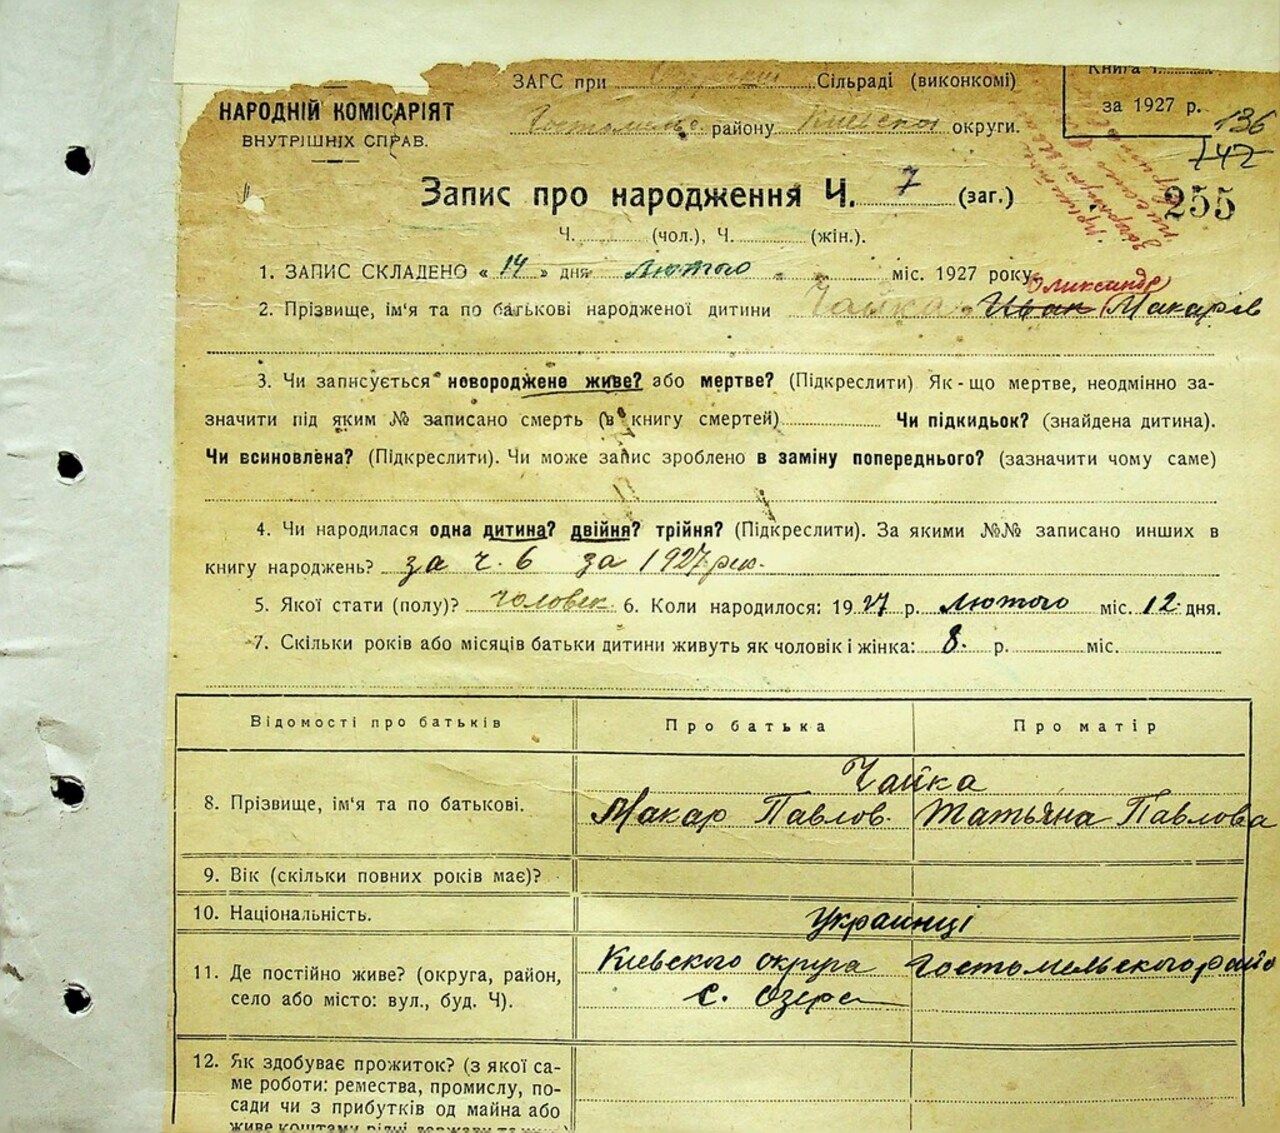 ЗАГС при Сільраді (виконкомі)
Книга Ч.
НАРОДНІЙ КОМІСАРІЯТ
за 1927 р.
ВНУТРІШНІХ СПРАВ.
Гостомльс. району Киівской округи.
136
142
255
Запис про народження Ч. 7 (заг.)
Ч. (чол.), Ч. (жін.).
1. ЗАПИС СКЛАДЕНО « 14 » дня лютого міс. 1927 року
Олександр
2. Прізвище, ім'я та по батькові народженої дитини Чайка Иван Макарів
3. Чи записується новороджене живе? або мертве? (Підкреслити) Як-що мертве, неодмінно за-
значити під яким № записано смерть (в книгу смертей) Чи підкидьок? (знайдена дитина).
Чи всиновлена? (Підкреслити). Чи може запис зроблено в заміну попереднього? (зазначити чому саме)
4. Чи народилася одна дитина? двійня? трійня? (Підкреслити). За якими №№ записано инших в
книгу народжень? за ч. 6 за 1927 рік.
5. Якої стати (полу)? чоловек. 6. Коли народилося: 1927 р. лютого міс. 12 дня.
7. Скільки років або місяців батьки дитини живуть як чоловік і жінка: 8. р. міс.
Відомості про батьків Про батька Про матір
Чайка
8. Прізвище, ім'я та по батькові. Макар Павлов. Татьяна Павлова
9. Вік (скільки повних років має)?
10. Національність. Украинці
11. Де постійно живе? (округа, район, Киевского округа Гостомельского райо
село або місто: вул., буд. Ч). с. Озера
12. Як здобуває прожиток? (з якої са-
ме роботи: ремества, промислу, по-
сади чи з прибутків од майна або
живе коштами рідні, держави